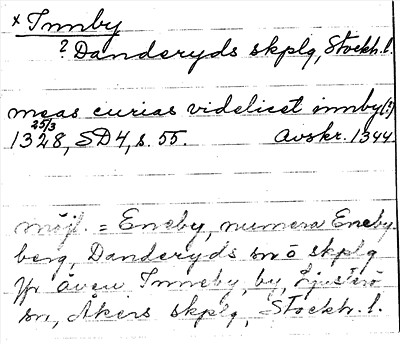 × Innby
? Danderyds skplg, Stockh. l.
meas curias videlicet innby(?)
1328 25/3, SD4, s. 55. Avskr. 1344
möjl. = Eneby, numera Eneby-
berg, Danderyds sn o skplg
Jfr även Inneby, by, Ljusterö
sn, Åkers skplg, Stockh. l.